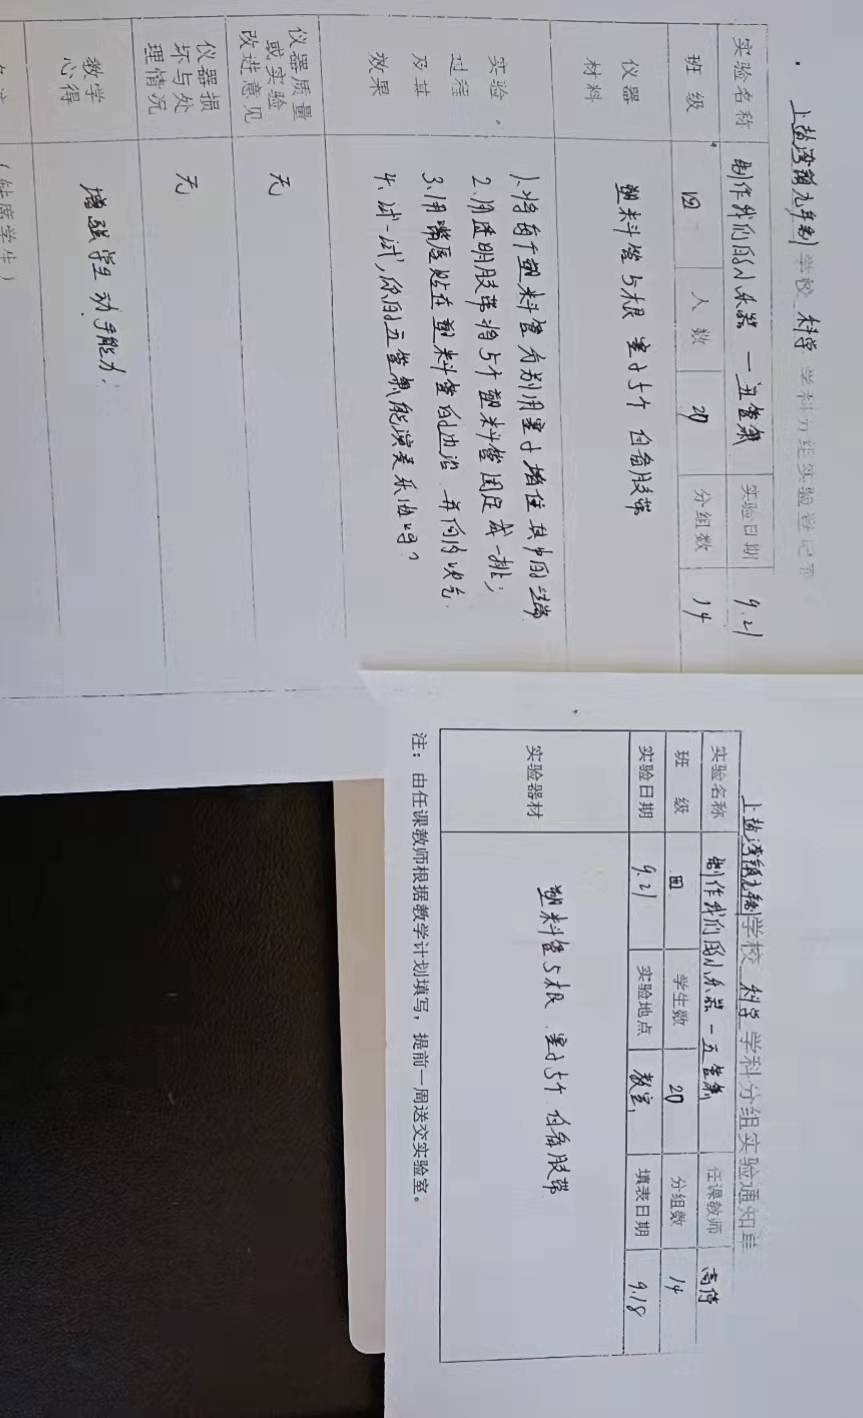 上盐湾镇九年制学校 科学 学科分组实验登记
实验名称 制作我们的小乐器一五管氣 实验日期 9.21
班级 四 人数 20 分组数 14
仪器材料 塑料管5根 塞子5个 白备胶带
实验过程及其效果
1.将每个塑料管分别用塞子堵住其中的一端
2.用透明胶带将5个塑料管固定成一排;
3.用嘴唇贴在塑料管的边沿 并向内吹气.
4.试一试,你的五管氣能演奏乐曲吗?
仪器质量或实验改进意见 无
仪器损坏与处理情况 无
教学心得 增强学生动手能力;
(缺席学生)
上盐湾镇九年制学校 科学 学科分组实验通知单
实验名称 制作我们的小乐器一五管氣 任课教师 高婷
班级 四 学生数 20 分组数 14
实验日期 9.21 实验地点 教室 填表日期 9.18
实验器材 塑料管5根 塞子5个 白备胶带
注:由任课教师根据教学计划填写,提前一周送交实验室。